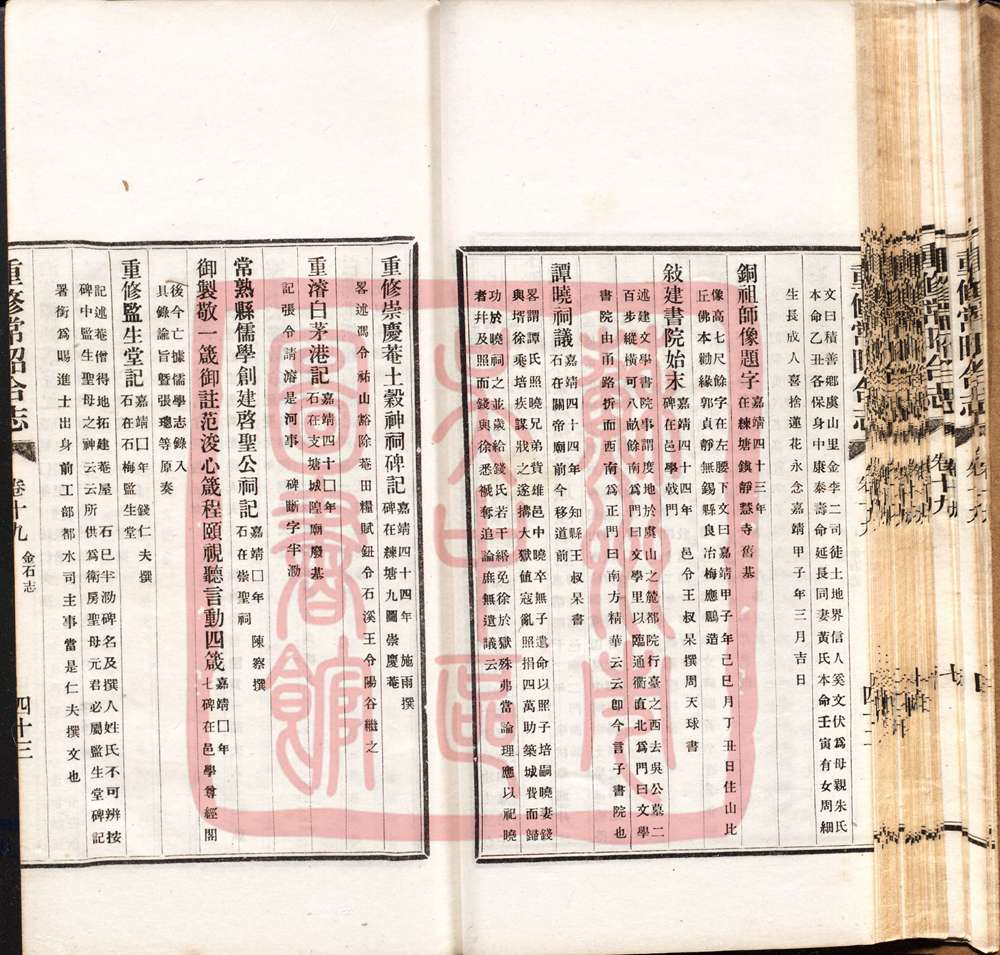 文曰積善鄉虞山里金李二司徒土地界信人奚文伏為母親朱氏
本命乙丑各保身中康泰壽命延長同妻黃氏本命壬寅有女周細
生長成人喜捨蓮花永念嘉靖甲子年三月吉日
銅祖師像題字嘉靖四十三年
在練塘鎮靜慧寺舊基
像高七尺餘字在左腰下文曰嘉靖甲子年己巳月丁丑日住山比
丘佛本勸緣郭貞靜無錫縣良冶梅應鵬造
敍建書院始末嘉靖四十四年 邑令王叔杲撰周天球書
碑在邑學戟門
述建文學書院事謂度地於虞山之麓都院行臺之西去吳公墓二
百步縱橫可八畝餘南為門曰文學里以臨通衢直北為門曰文學
書院由甬路折而西南為正門曰南方精華云云卽今言子書院也
譚曉祠議嘉靖四十四年 知縣王叔杲書
石在關帝廟前今移道前
畧謂譚氏照曉兄弟貲雄邑中曉卒無子遺命以照子培嗣曉妻錢
與壻徐棐培疾謀戕之遂搆大獄値寇亂照捐四萬助築城貲而歸
功於曉祠之並歲給錢氏若干緡免徐於獄殊弗當論理應以祀曉
者幷及照而錢與徐悉褫奪追論庶無遺議云
重修崇慶菴土穀神祠碑記嘉靖四十四年 施雨撰
碑在練塘九圖崇慶菴
畧述馮令祐山豁除菴田糧賦鈕令石溪王令陽谷繼之
重濬白茅港記嘉靖四十囗年
石在支塘城隍廟廢基
記張令請濬是河事碑斷字半泐
常熟縣儒學創建啓聖公祠記嘉靖囗年 陳察撰
石在崇聖祠
御製敬一箴御註范浚心箴程頤視聽言動四箴嘉靖囗年
七碑在邑學尊經閣
後今亡據儒學志錄入
具錄諭旨曁張璁等原奏
重修監生堂記嘉靖囗年 錢仁夫撰
石在石梅監生堂
記述菴僧得地拓建菴屋 石已半泐碑名及撰人姓氏不可辨按
碑中監生聖母之神云云所供為衛房聖母元君必屬監生堂碑記
署銜為賜進士出身前工部都水司主事當是仁夫撰文也
重修常昭合志
卷十九
金石志
四十三